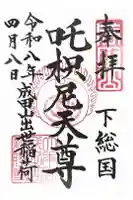 奉拝
下総国
吒枳尼天尊
令和八年
四月八日
成田山出世稲荷